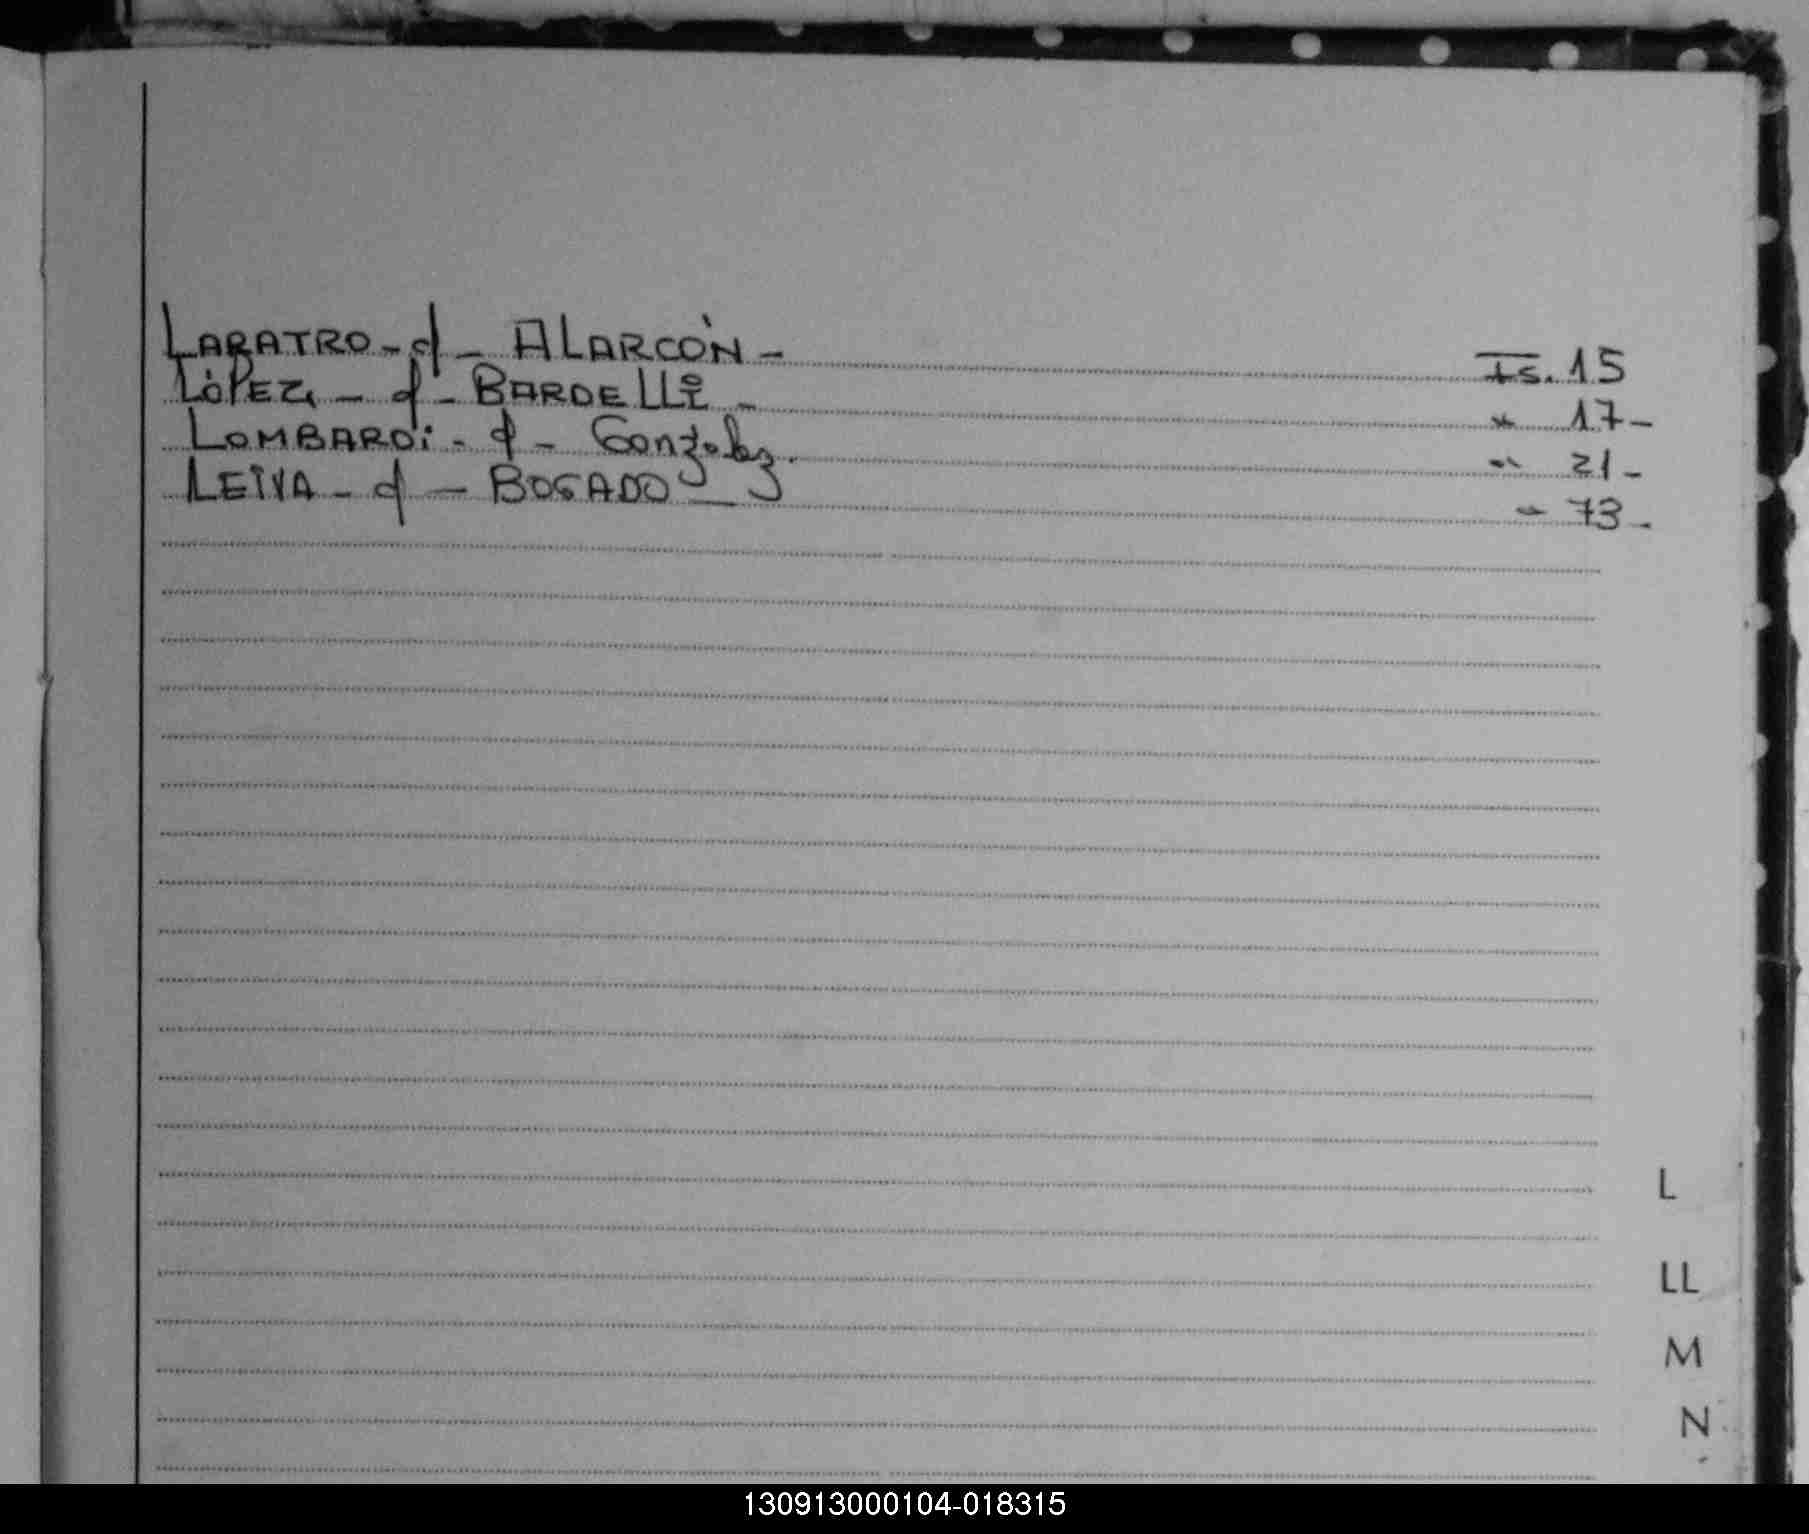 LABATRO - d - ALARCÓN - Fs. 15
LÓPEZ - d - BARDELLi - " 17 -
LOMBARDi - d - Gonzalez. " 21 -
LEIVA - d - BOSADO - " 73 -
L
LL
M
N
130913000104-018315